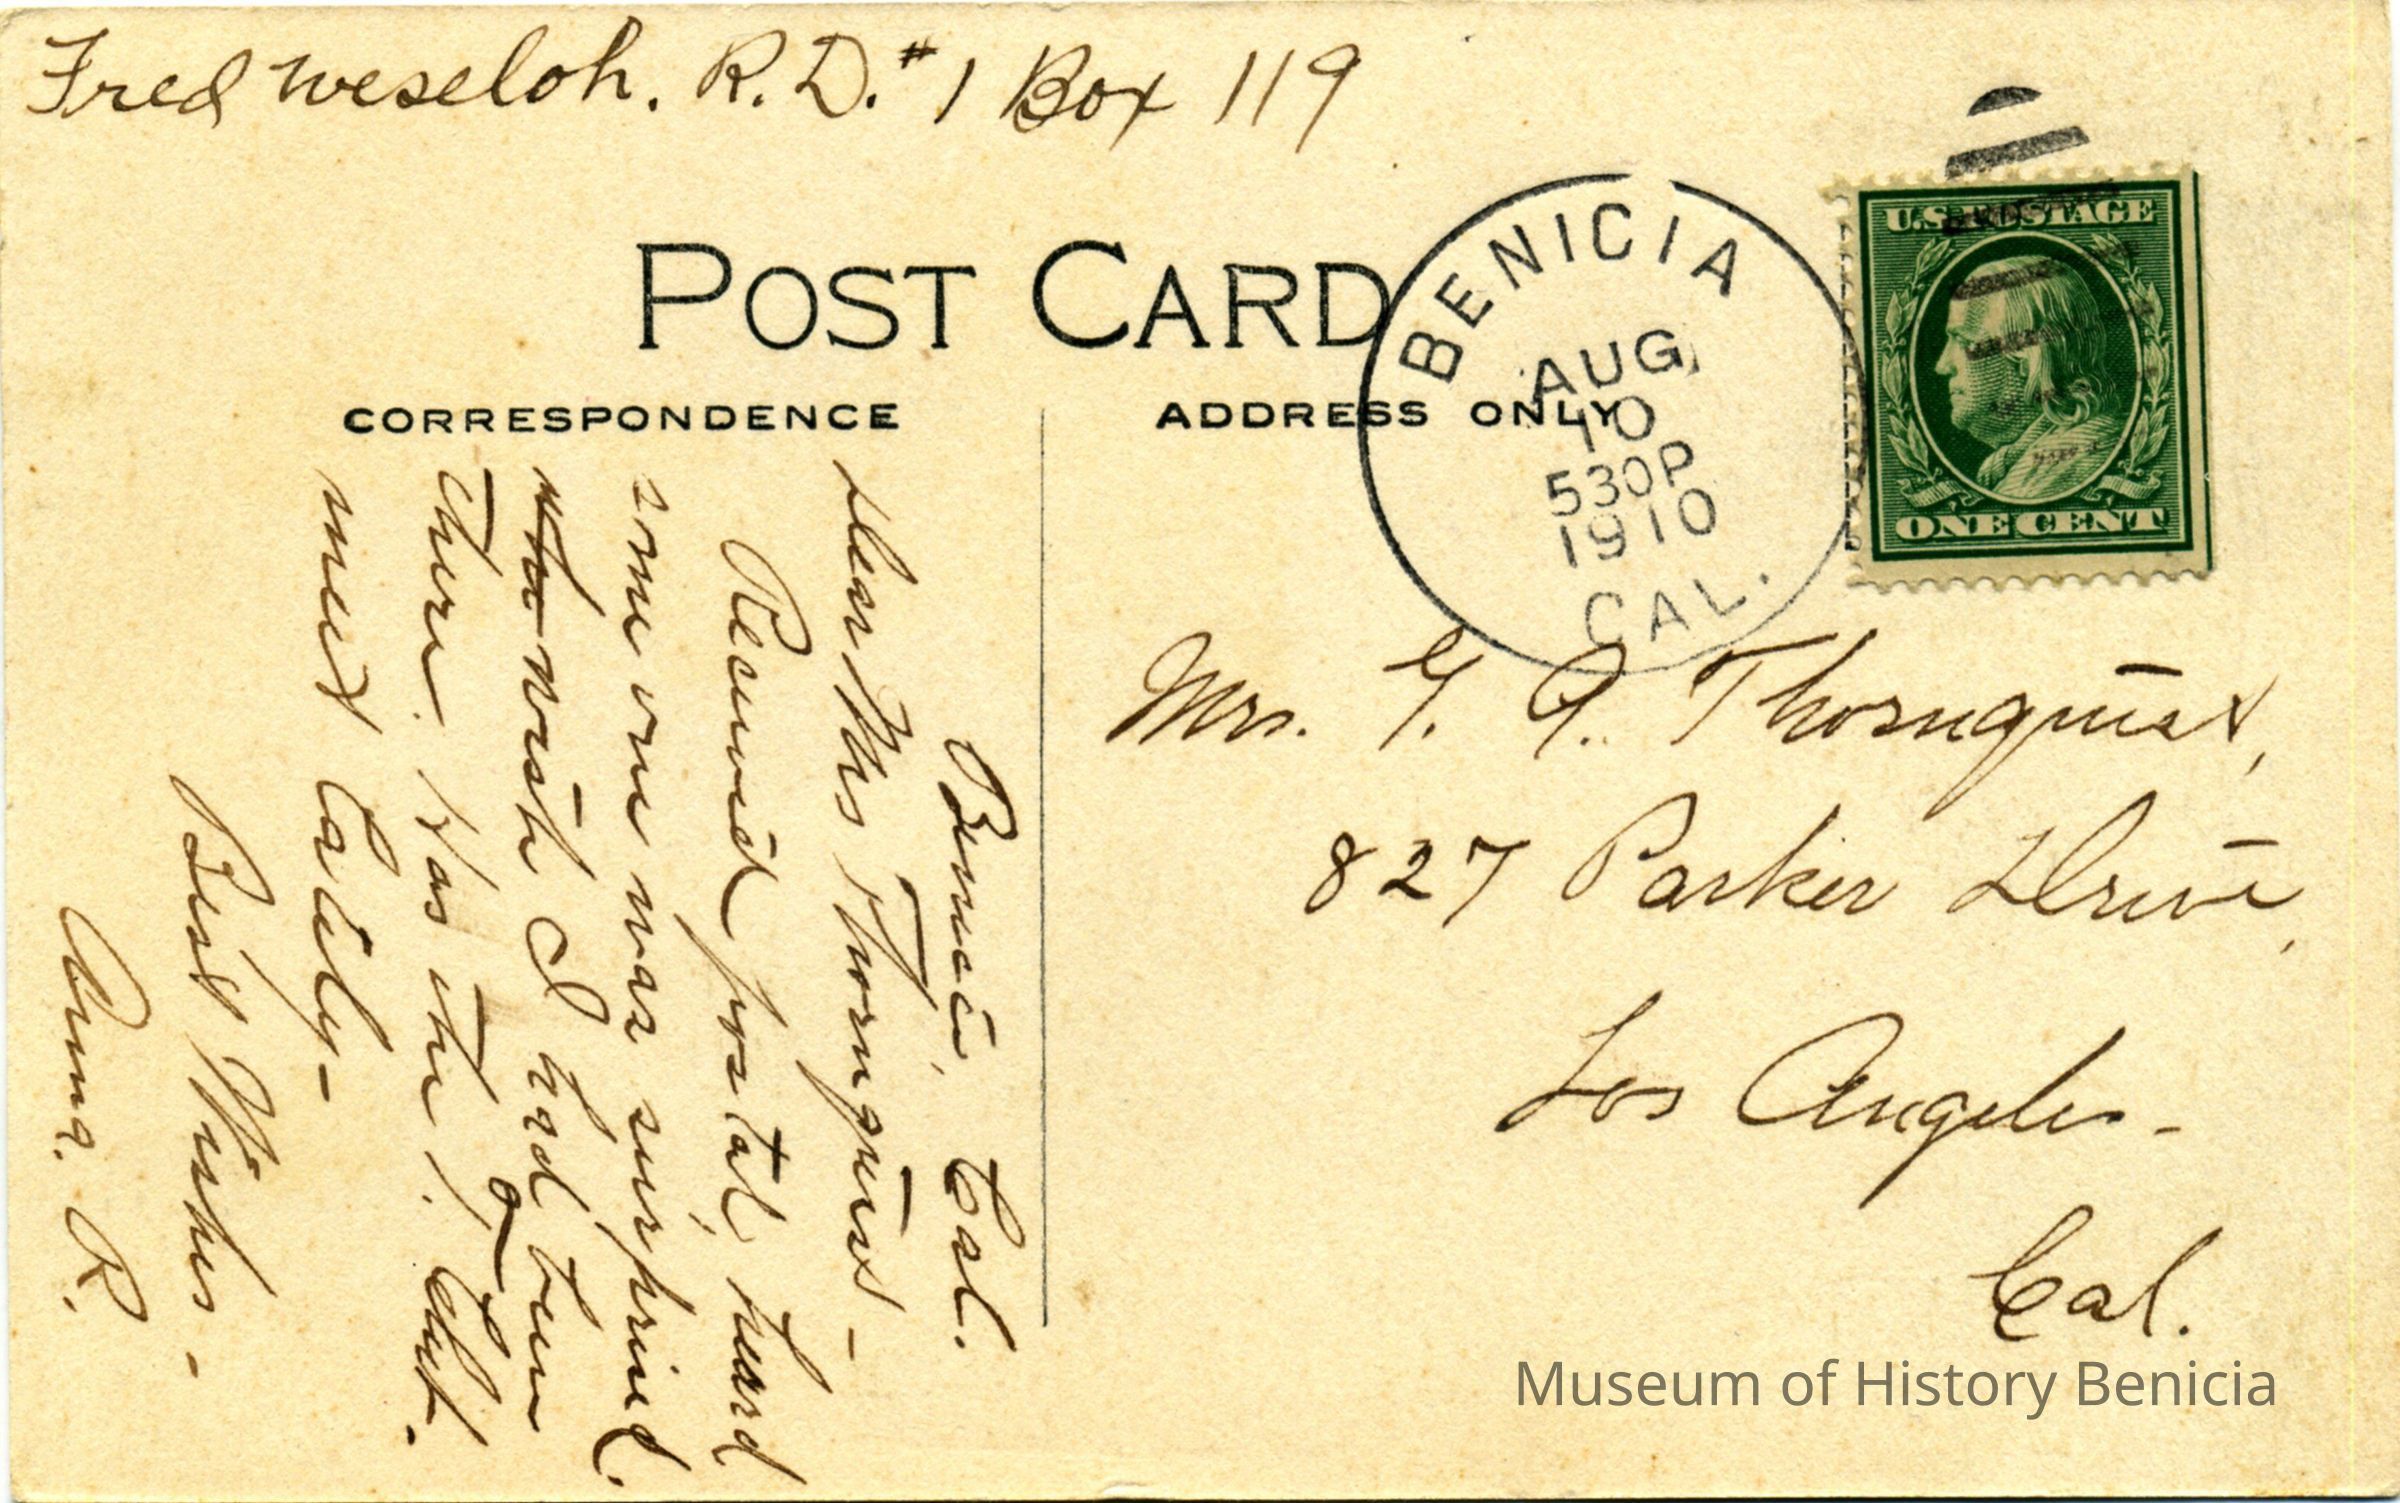 Fred Weseloh. R.D. #1 Box 119
POST CARD
CORRESPONDENCE
ADDRESS ONLY
BENICIA
AUG
10
530P
1910
CAL.
U.S. POSTAGE
ONE CENT
Benicia, Cal.
Dear Mrs Thornquist -
Received postal, heard
some one was surprised.
who wish I had been
there. Has the
meet Caddy -
Best Wishes -
Anna. R.
Mrs. G. A. Thornquist,
827 Parker Drive,
Los Angeles -
Cal.
Museum of History Benicia